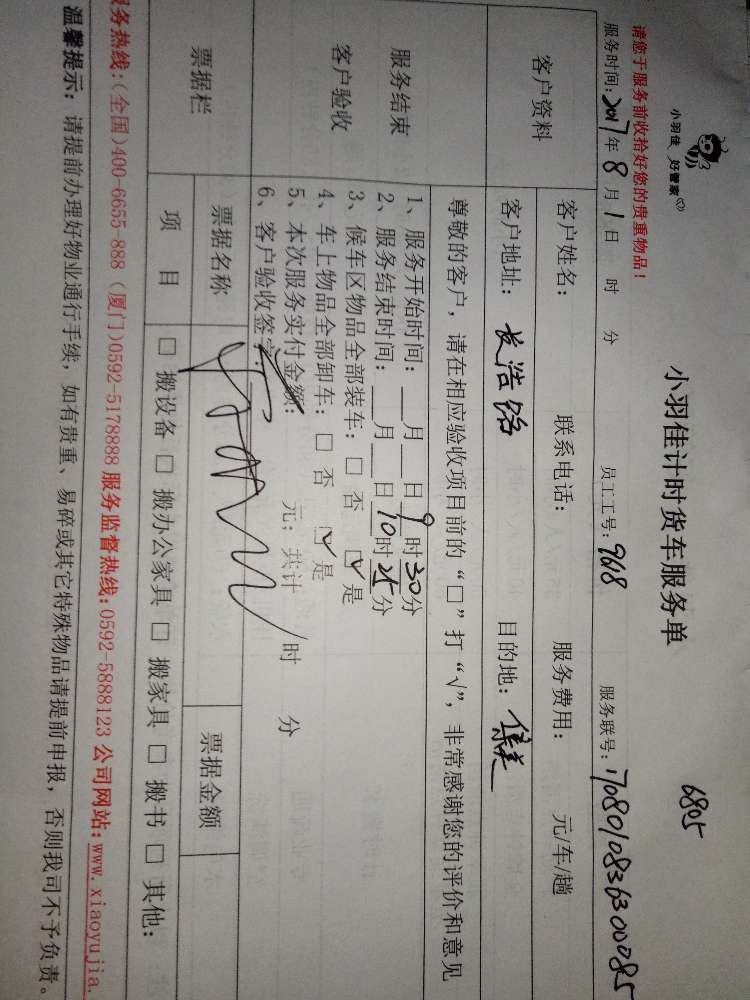 小羽佳 好管家
小羽佳计时货车服务单
6805
请您于服务前收拾好您的贵重物品！
服务时间：2017年 8 月 1 日 时 分 员工工号：9618 服务联号：170801083630085
客户资料
客户姓名： 联系电话： 服务费用： 元/车/趟
客户地址：长浩路 目的地：集美
服务结束
客户验收
尊敬的客户，请在相应验收项目前的“□”打“√”，非常感谢您的评价和意见
1、服务开始时间：___月___日 9 时 30 分
2、服务结束时间：___月___日 10 时 25 分
3、候车区物品全部装车：□ 否 ☑ 是
4、车上物品全部卸车：□ 否 ☑ 是
5、本次服务实付金额： 元；共计 时 分
6、客户验收签字：
票据栏 票据名称 票据金额
项 目 □ 搬设备 □ 搬办公家具 □ 搬家具 □ 搬书 □ 其他：
服务热线：(全国)400-6655-888 (厦门)0592-5178888 服务监督热线：0592-5888123 公司网站：www.xiaoyujia.
温馨提示：请提前办理好物业通行手续，如有贵重、易碎或其它特殊物品请提前申报，否则我司不予负责。